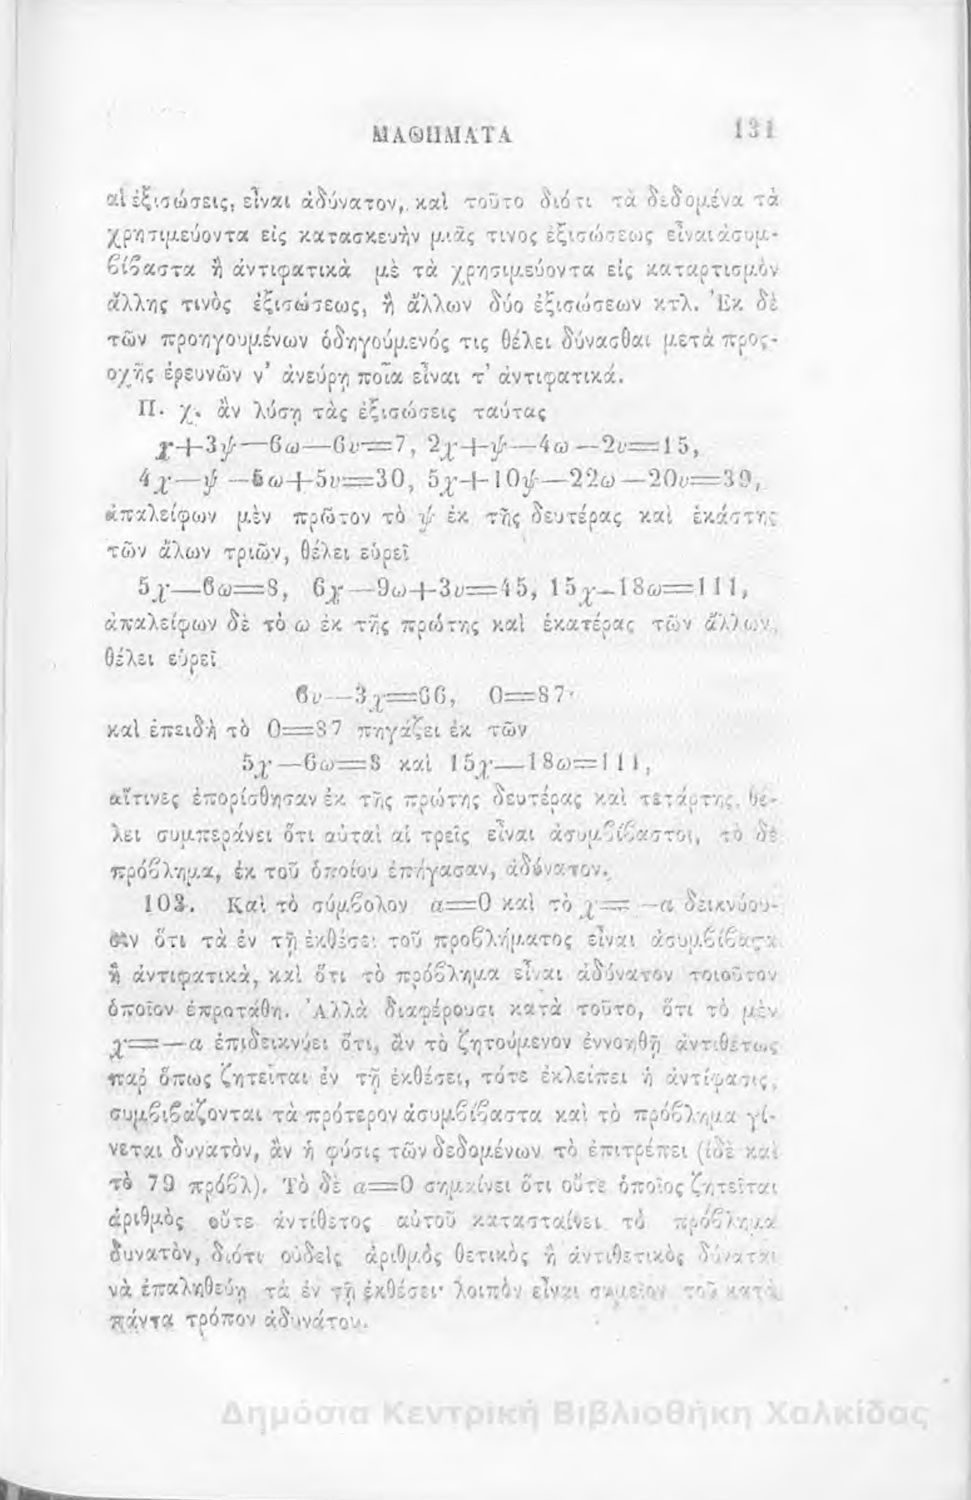 ΜΑΘΗΜΑΤΑ 131
αἱ ἐξισώσεις, εἶναι ἀδύνατον, καὶ τοῦτο διότι τὰ δεδομένα τὰ
χρησιμεύοντα εἰς κατασκευὴν μιᾶς τινος ἐξισώσεως εἶναι ἀσυμ-
βίβαστα ἢ ἀντιφατικὰ μὲ τὰ χρησιμεύοντα εἰς καταρτισμὸν
ἄλλης τινὸς ἐξισώσεως, ἢ ἄλλων δύο ἐξισώσεων κτλ. Ἐκ δὲ
τῶν προηγουμένων ὁδηγούμενός τις θέλει δύνασθαι μετὰ προς-
οχῆς ἐρευνῶν ν' ἀνεύρῃ ποῖα εἶναι τ' ἀντιφατικά.
Π. χ. ἂν λύσῃ τὰς ἐξισώσεις ταύτας
χ+3ψ—6ω—6υ=7, 2χ+ψ—4ω—2υ=15,
4χ—ψ—5ω+5υ=30, 5χ+10ψ—22ω—20υ=39,
ἀπαλείφων μὲν πρῶτον τὸ ψ ἐκ τῆς δευτέρας καὶ ἑκάστης
τῶν ἄλων τριῶν, θέλει εὑρεῖ
5χ—6ω=8, 6χ—9ω+3υ=45, 15χ—18ω=111,
ἀπαλείφων δὲ τὸ ω ἐκ τῆς πρώτης καὶ ἑκατέρας τῶν ἄλλων,
θέλει εὑρεῖ
6υ—3χ=66, 0=87·
καὶ ἐπειδὴ τὸ 0=87 πηγάζει ἐκ τῶν
5χ—6ω=8 καὶ 15χ—18ω=111,
αἵτινες ἐπορίσθησαν ἐκ τῆς πρώτης δευτέρας καὶ τετάρτης, θέ-
λει συμπεράνει ὅτι αὐταὶ αἱ τρεῖς εἶναι ἀσυμβίβαστοι, τὸ δὲ
πρόβλημα, ἐκ τοῦ ὁποίου ἐπήγασαν, ἀδύνατον.
103. Καὶ τὸ σύμβολον α=0 καὶ τὸ χ=—α δεικνύου-
σιν ὅτι τὰ ἐν τῇ ἐκθέσει τοῦ προβλήματος εἶναι ἀσυμβίβαστα
ἢ ἀντιφατικὰ, καὶ ὅτι τὸ πρόβλημα εἶναι ἀδύνατον τοιοῦτον
ὁποῖον ἐπροτάθη. Ἀλλὰ διαφέρουσι κατὰ τοῦτο, ὅτι τὸ μὲν
χ=—α ἐπιδεικνύει ὅτι, ἂν τὸ ζητούμενον ἐννοηθῇ ἀντιθέτως
παρ' ὅπως ζητεῖται ἐν τῇ ἐκθέσει, τότε ἐκλείπει ἡ ἀντίφασις,
συμβιβάζονται τὰ πρότερον ἀσυμβίβαστα καὶ τὸ πρόβλημα γί-
νεται δυνατὸν, ἂν ἡ φύσις τῶν δεδομένων τὸ ἐπιτρέπει (ἰδὲ καὶ
τὸ 79 πρόβλ). Τὸ δὲ α=0 σημαίνει ὅτι οὔτε ὁποῖος ζητεῖται
ἀριθμὸς οὔτε ἀντίθετος αὐτοῦ κατασταίνει τὸ πρόβλημα
δυνατὸν, διότι οὐδεὶς ἀριθμὸς θετικὸς ἢ ἀντιθετικὸς δύναται
νὰ ἐπαληθεύῃ τὰ ἐν τῇ ἐκθέσει· λοιπὸν εἶναι σημεῖον τοῦ κατὰ
πάντα τρόπον ἀδυνάτου.
Δημόσια Κεντρική Βιβλιοθήκη Χαλκίδας